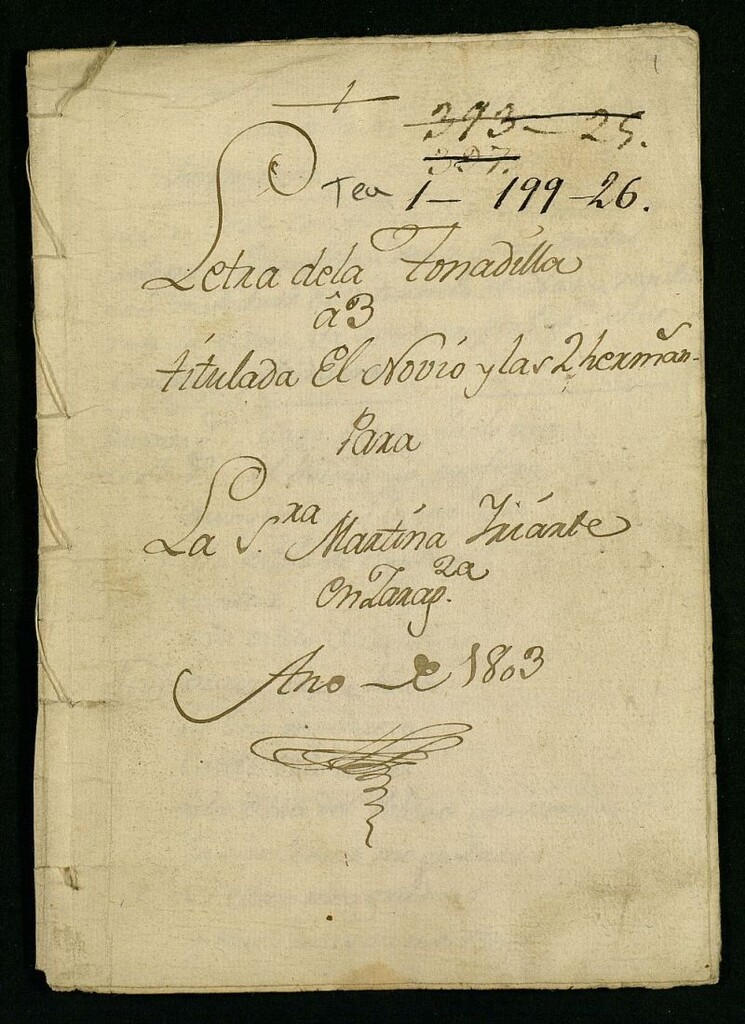 1
393 - 25.
387.
Tea 1 - 199 - 26.
Letra dela Tonadilla
â 3
titulada El Novio y las 2 herman-
Para
La S.ra Martina Iriarte
en Zarag.za
Ano de 1803